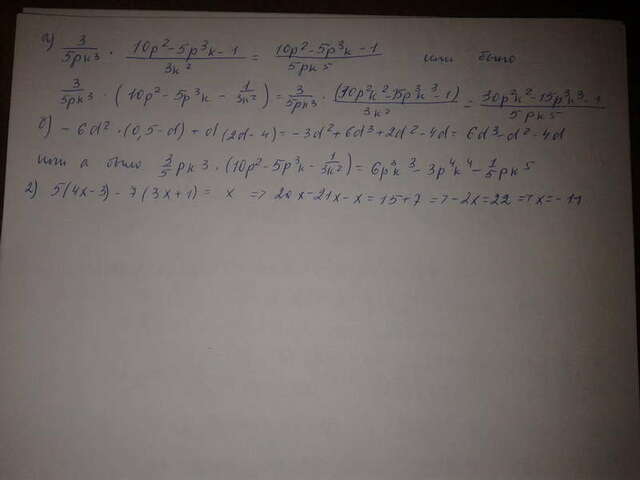 а) 3/5pk³ · (10p² - 5p³k - 1)/3k² = (10p² - 5p³k - 1)/5pk⁵ или было
3/5pk³ · (10p² - 5p³k - 1/3k²) = 3/5pk³ · (30p²k² - 15p³k³ - 1)/3k² = (30p²k² - 15p³k³ - 1)/5pk⁵
б) - 6d² · (0,5 - d) + d (2d - 4) = - 3d² + 6d³ + 2d² - 4d = 6d³ - d² - 4d
или а было 3/5 pk³ · (10p² - 5p³k - 1/3k²) = 6p³k³ - 3p⁴k⁴ - 1/5 pk⁵
2) 5(4x - 3) - 7(3x + 1) = x => 20x - 21x - x = 15 + 7 => - 2x = 22 => x = - 11